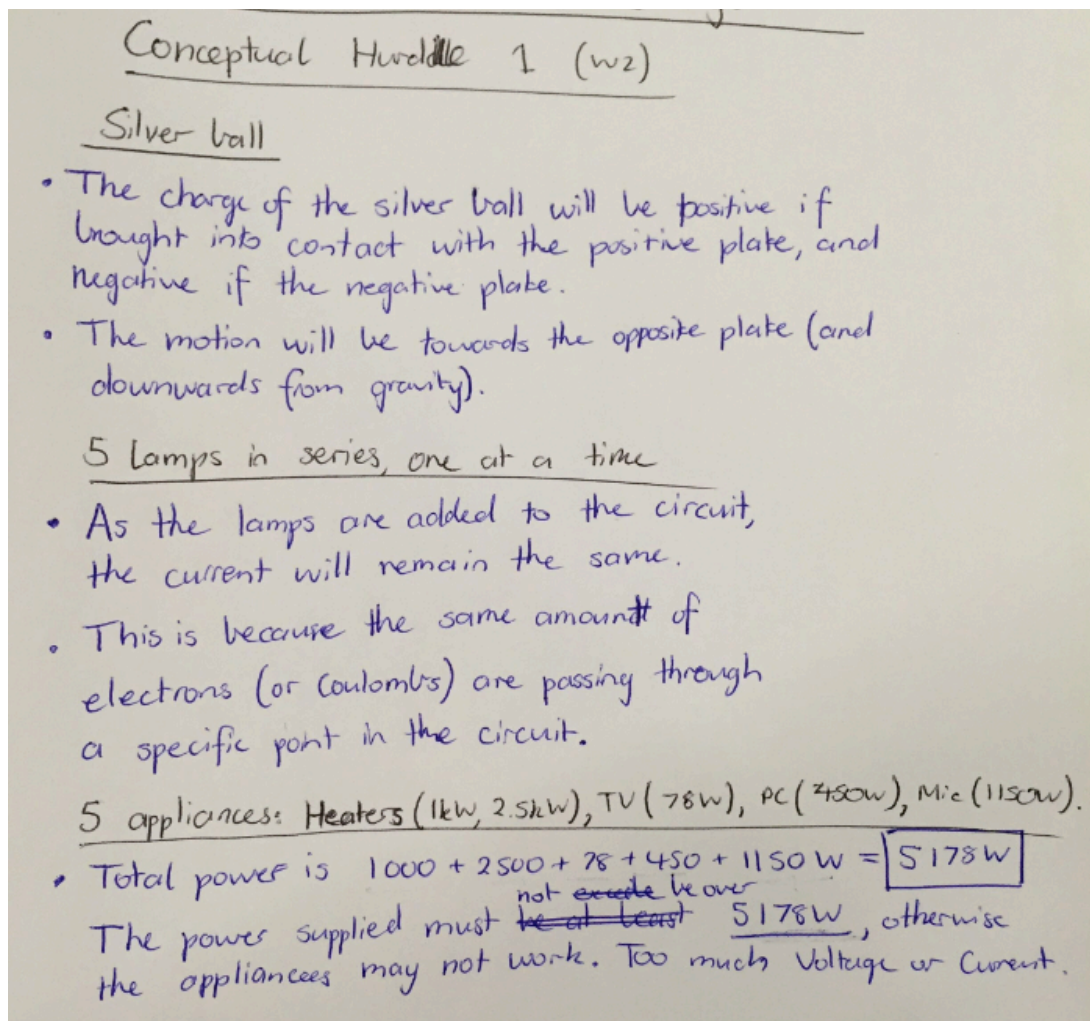 Conceptual Hurdle 1 (W2)
Silver ball
• The charge of the silver ball will be positive if
brought into contact with the positive plate, and
negative if the negative plate.
• The motion will be towards the opposite plate (and
downwards from gravity).
5 Lamps in series, one at a time
• As the lamps are added to the circuit,
the current will remain the same.
• This is because the same amount of
electrons (or Coulombs) are passing through
a specific point in the circuit.
5 appliances: Heaters (1kW, 2.5kW), TV (78W), PC (450W), Mic (1150W).
• Total power is 1000 + 2500 + 78 + 450 + 1150 W = 5178W
not be over
The power supplied must be at least 5178W, otherwise
the appliancees may not work. Too much Voltage or Current.